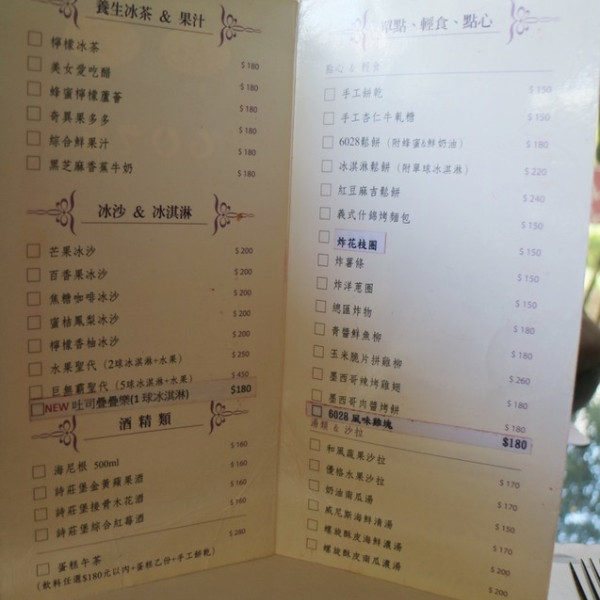 養生冰茶 & 果汁
檸檬冰茶
美女愛吃醋 $180
蜂蜜檸檬蘆薈 $180
奇異果多多 $180
綜合鮮果汁 $180
黑芝麻香蕉牛奶 $180
$180
冰沙 & 冰淇淋
芒果冰沙 $200
百香果冰沙 $200
焦糖咖啡冰沙 $200
蜜桔鳳梨冰沙 $200
檸檬香柚冰沙 $200
水果聖代 (2球冰淇淋+水果) $250
巨無霸聖代 (5球冰淇淋+水果) $450
NEW 吐司疊疊樂(1球冰淇淋) $180
酒精類
海尼根 500ml $160
詩莊堡金黃蘋果酒 $160
詩莊堡接骨木花酒 $160
詩莊堡綜合紅莓酒 $160
蛋糕午茶 $280
(飲料任選$180元以內+蛋糕乙份+手工餅乾)
單點、輕食、點心
點心 & 輕食
手工餅乾 $150
手工杏仁牛軋糖 $150
6028鬆餅 (附蜂蜜&鮮奶油) $180
冰淇淋鬆餅 (附單球冰淇淋) $220
紅豆麻吉鬆餅 $240
義式什錦烤麵包 $150
炸花枝圈 $150
炸薯條 $150
炸洋蔥圈 $150
總匯炸物
青醬鮮魚柳 $180
玉米脆片拼雞柳 $260
墨西哥辣烤雞翅 $180
墨西哥肉醬烤餅 $180
6028 風味雞塊 $180
湯類 & 沙拉
和風蔬果沙拉
優格水果沙拉 $170
奶油南瓜湯 $170
威尼斯海鮮濃湯 $150
螺旋酥皮海鮮濃湯 $170
螺旋酥皮南瓜濃湯 $200
$200